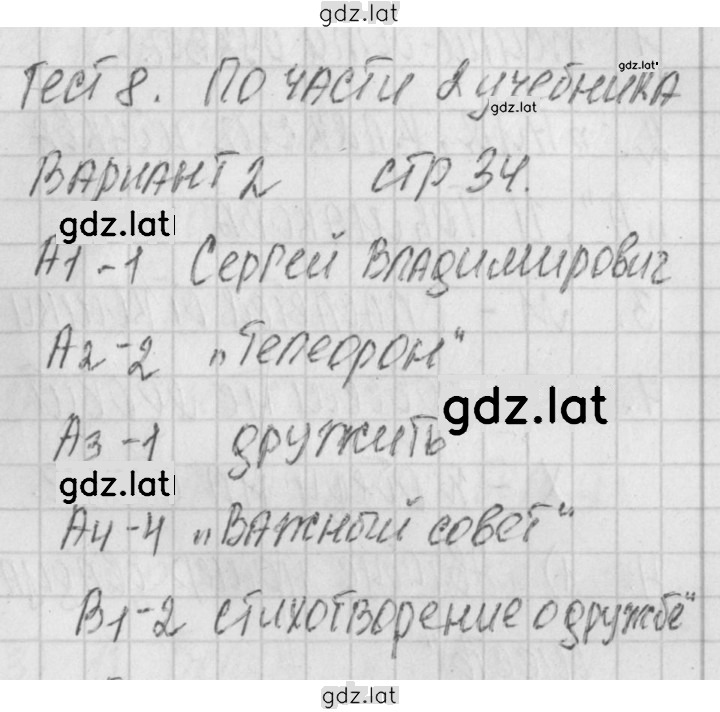 gdz.lat
Тест 8. По части 2 учебника
gdz.lat
gdz.lat
Вариант 2 стр 34.
gdz.lat
А1-1 Сергей Владимирович
А2-2 „Телефон“
gdz.lat
А3-1 дружить
gdz.lat
А4-4 „Важный совет“
В1-2 стихотворение о дружбе“
gdz.lat